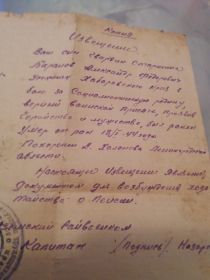 Копия
Извещение
Ваш сын гвардии Старшина
Баранов Александр Фёдорович
Уроженец Хабаровского края в
бою за Социалистическую родину,
верный воинской присяге, проявив
геройство и мужество, был ранен
умер от ран 18/I-44 года
Похоронен д. Ленинградской
области.
Настоящее извещение является
документом для возбуждения хода
тайства о пенсии.
Райвоенком
Капитан /подпись/ Назар